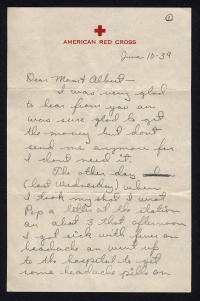 ①
AMERICAN RED CROSS
June 10-39
Dear Mom & Albert—
I was very glad
to hear from you an
was sure glad to get
the money but dont
send me anymore for
I dont need it.
The other day
(last Wednesday) when
I took my shot I wrot
Pop a letter at the station
an abot 3 that afternoon
I got sick with fever an
headache an went up
to the hospital to get
some headache pills an